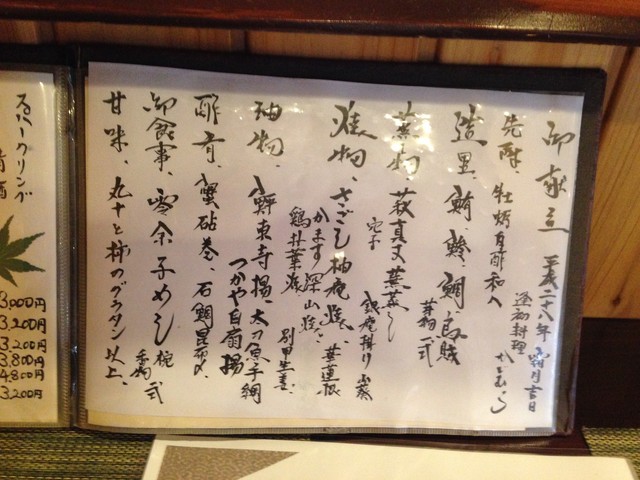 御献立 平成二十八年 霜月吉日
料理
先附、牡蛎 酢和へ
造里 鮪、鯵、鯛、烏賊
芽物一式
蒸し物 萩真丈 蕪蒸し
穴子 銀庵掛け 山葵
焼物、さごし柚庵焼、酢蓮根
かます深山焼、別甲生姜
鶏 葉焼
油物、 東寺揚、太刀魚手綱
つかや白扇揚
酢肴、蟹砧巻、石鯛昆布〆
御食事、雲余子めし 椀 香物 一式
甘味、丸十と柿のグラタン 以上、
スパークリング
酒
3,000円
3,200円
3,200円
3,800円
4,800円
3,200円